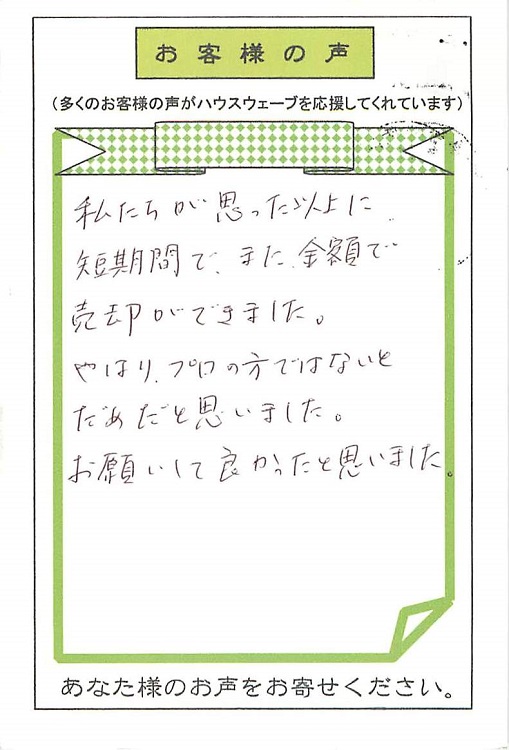 お客様の声
(多くのお客様の声がハウスウェーブを応援してくれています)
私たちが思った以上に
短期間で、また、金額で
売却ができました。
やはり、プロの方ではないと
だめだと思いました。
お願いして良かったと思いました。
あなた様のお声をお寄せください。